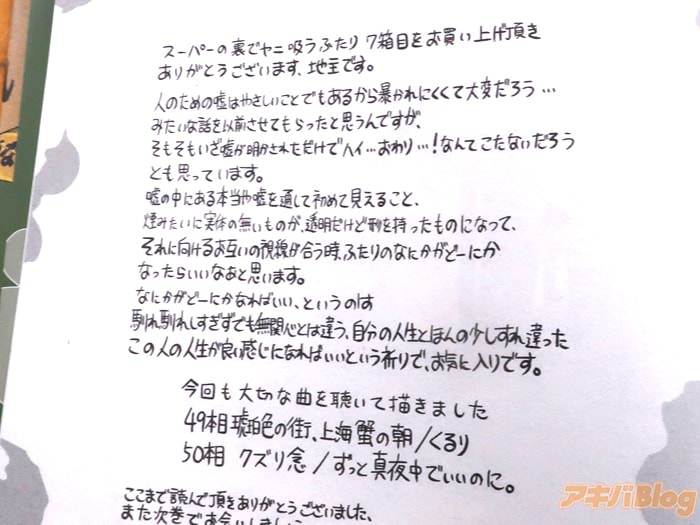 スーパーの裏でヤニ吸うふたり 7箱目をお買い上げ頂き
ありがとうございます、地主です。
人のための嘘はやさしいことでもあるから暴かれにくくて大変だろう…
みたいな話を以前させてもらったと思うんですが、
そもそもいざ嘘が明かされただけでハイ…おわり…!なんてこたないだろう
とも思っています。
嘘の中にある本当や嘘を通して初めて見えること、
煙みたいに実体の無いものが、透明だけど形を持ったものになって、
それに向けるお互いの視線が合う時、ふたりのなにかがどーにか
なったらいいなあと思います。
なにかがどーにかなればいい、というのは
馴れ馴れしすぎずでも無関心とは違う、自分の人生とほんの少しすれ違った
この人の人生が良い感じになればいいという祈りで、お気に入りです。
今回も大切な曲を聴いて描きました
49相 琥珀色の街、上海蟹の朝/くるり
50相 クズリ念/ずっと真夜中でいいのに。
ここまで読んで頂きありがとうございました、
また次巻でお会いしましょう
アキバBlog